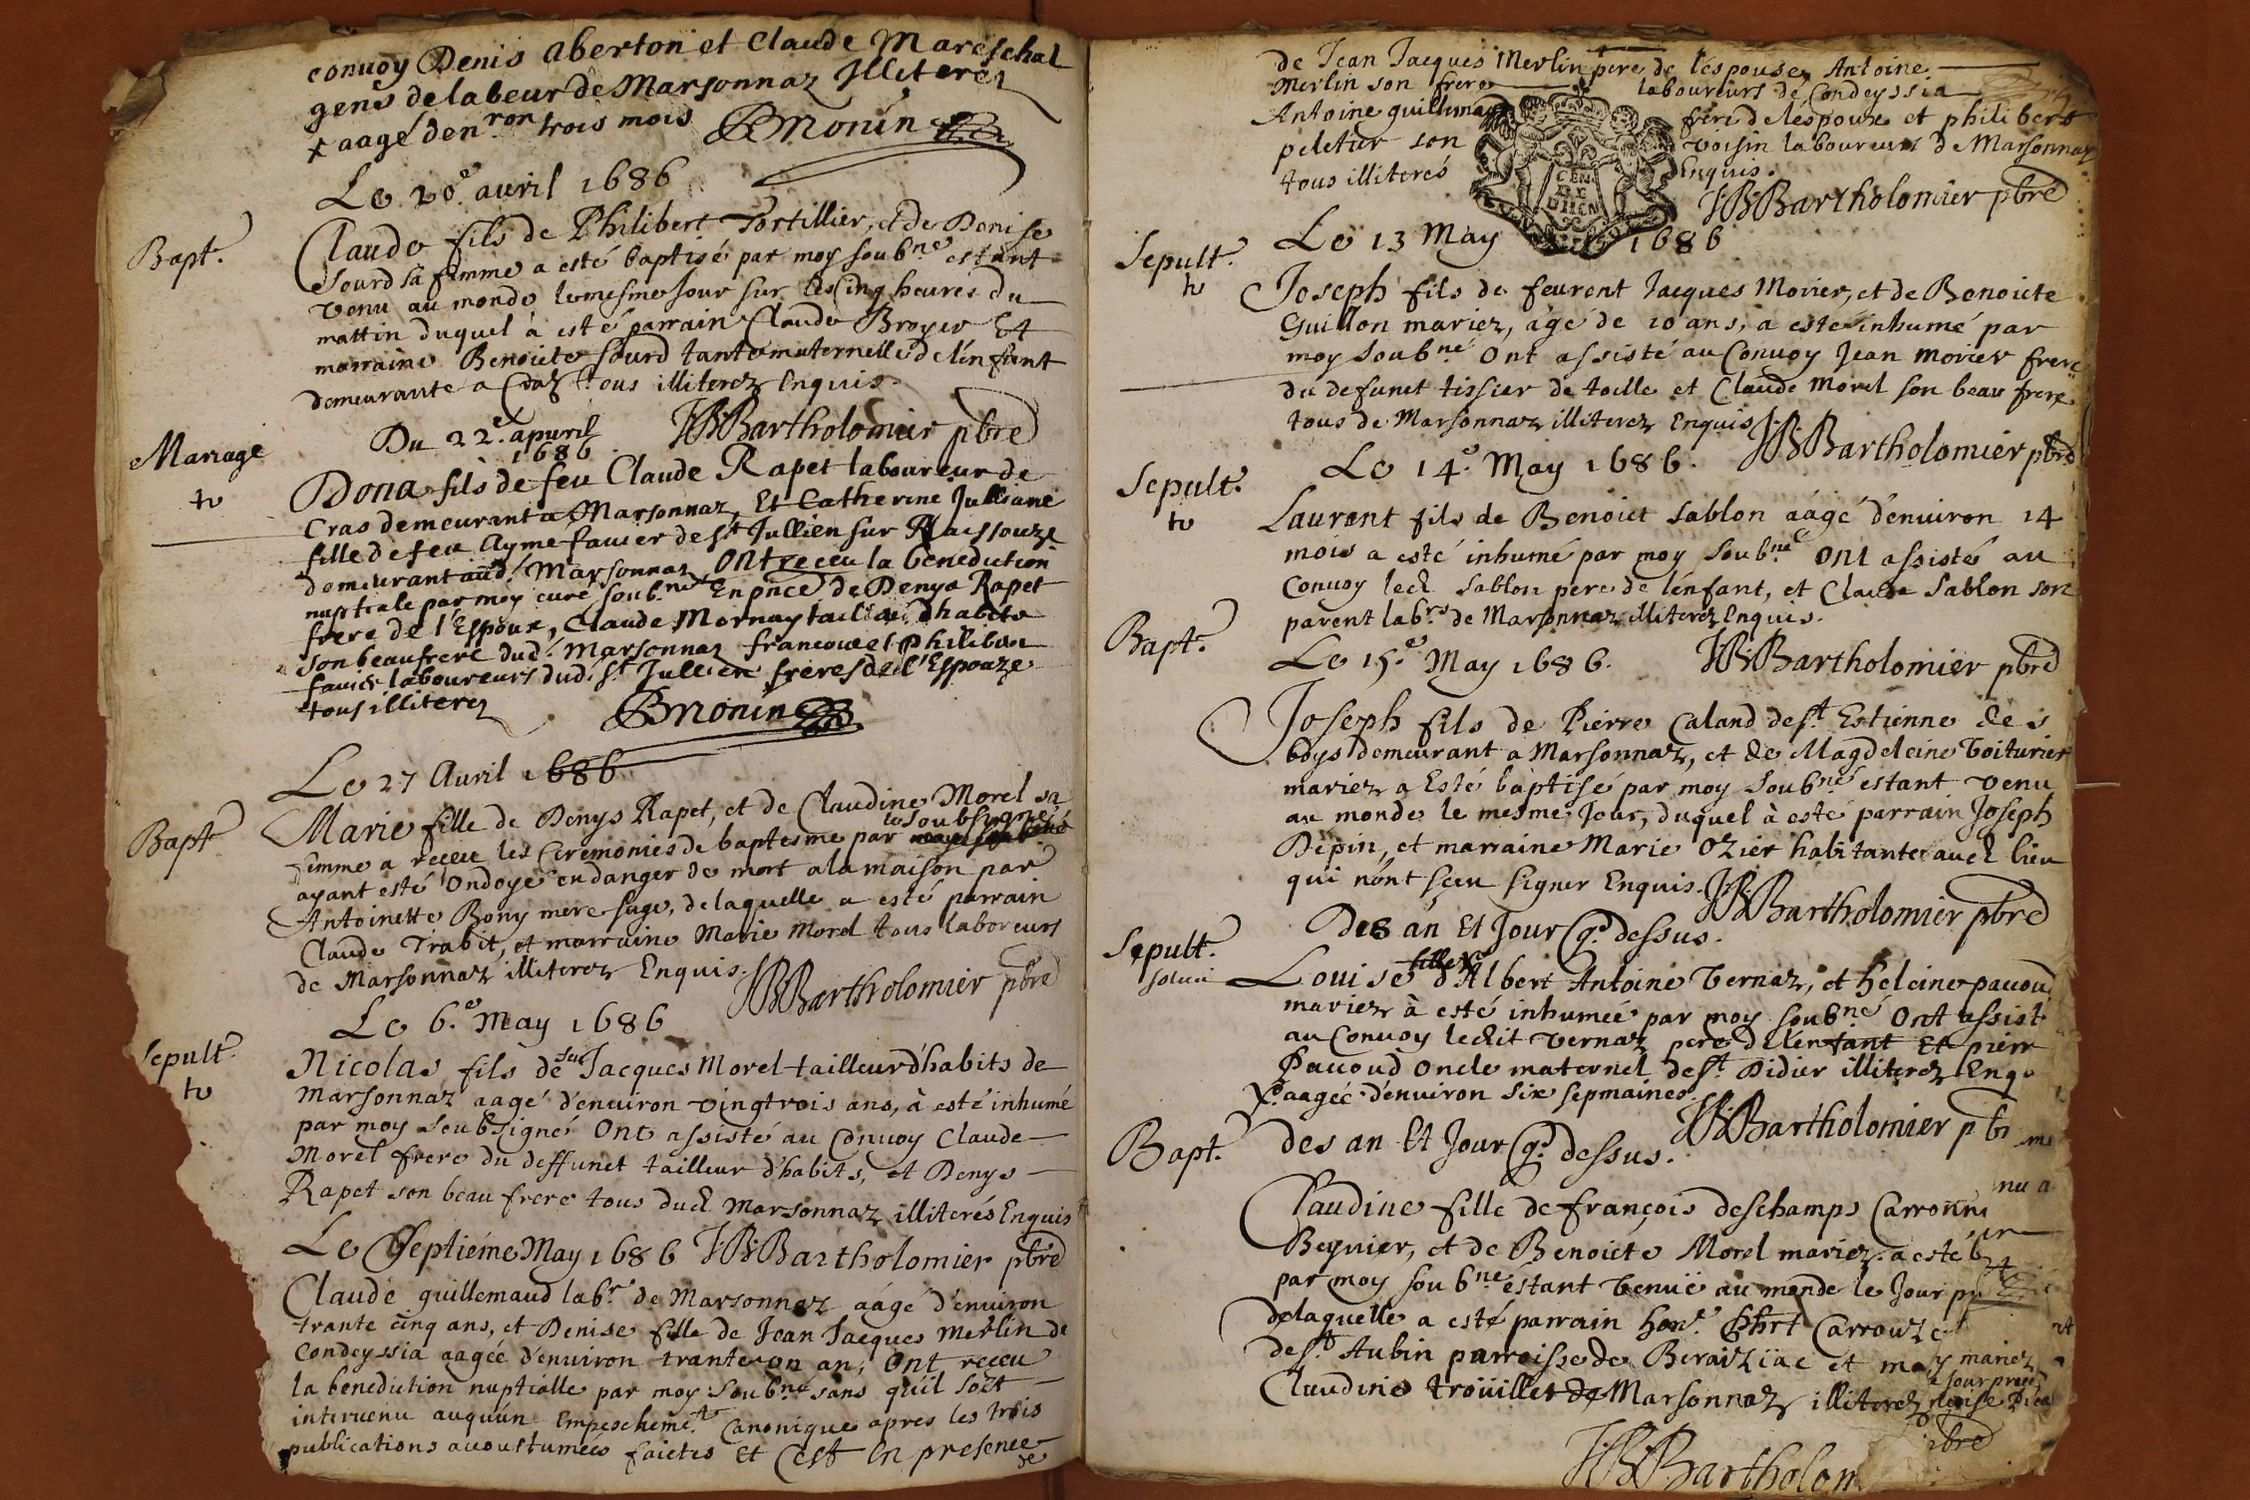 convoy Denis aberton et Claude Mareschal
gens de labeur de Marsonnaz Illiterez
x aagé d'en.ron trois mois BMonin
Le 20.e auril 1686
Bapt.
Claude fils de Philibert Tortillier, et de Denise
Sourd sa femme a esté baptisé par moy soub.né estant
venu au monde le mesme Jour sur les Cinq heures du
mattin duquel à esté parrain Claude Broyer Et
marraine Benoicte Sourd tante maternelle de l'enfant
demeurante a Craz tous illiterez Enquis.
JBBartholomier pbre
Mariage
tv
Du 22.e apuril
1686
Dona fils de feu Claude Rapet laboureur de
Cras demeurant a Marsonnaz, Et Catherine Julliane
fille de feu Ayme fauier de st Jullien sur Raissouze
demeurant aud. Marsonnaz ont receu la benediction
nuptiale par moy curé soub.né En pnce de Denys Rapet
frere de l'Espoux, Claude Mornay tailleur d'habits
son beaufrere dud. Marsonnaz francois et Philibert
fauier laboureurs dud. st Jullien freres de l'Espouze
tous illiterez
BMonin
Le 27 Auril 1686
Bapt
Marie fille de Denys Rapet, et de Claudine Morel sa
le soubsigné
femme a receu les Ceremonies de baptesme par moy soubné
ayant esté ondoyé en danger de mort a la maison par
Antoinette Bony mere sage, de laquelle a esté parrain
Claude Trabit, et marraine Marie Morel tous laboreurs
de Marsonnaz illiterez Enquis.
JBBartholomier pbre
Le 6.e May 1686
Sepult.
tv
Nicolas fils de feu Jacques Morel tailleur d'habits de
Marsonnaz aagé d'enuiron vingtrois ans, à esté inhumé
par moy Soubsigné Ont assisté au Conuoy Claude
Morel frere du deffunct tailleur d'habits, et Denys
Rapet son beau frere tous dud Marsonnaz illiterés Enquis
Le Septiéme May 1686 JBBartholomier pbre
Claude guillemaud lab.r de Marsonnaz aágé d'enuiron
trante cinq ans, et Denise fille de Jean Jacques Merlin de
Condeyssia aagée d'enuiron trante un an, Ont receu
la benediction nuptialle par moy Soub.né sans qu'il soit
interuenu auquun Empeschemét Canonique apres les trois
publications acoustumées faictes Et Cest En presence
de
de Jean Jacques Merlin pere de l'espouse, Antoine
Merlin son frere laboureurs de Condeyssia
Antoine guillemaud frere de l'espoux et philibert
peletier son voisin laboureurs de Marsonnaz
tous illiterés Enquis.
GEN
DE
DIION
JBBartholomier pbre
Le 13 May 1686
Sepult.
tv
Joseph fils de feurent Jacques Morier, et de Benoicte
Guillon mariez, àgé de 10 ans, a esté inhumé par
moy Soub.né Ont assisté au Conuoy Jean morier frere
du defunct tissier de toille et Claude Morel son beau frere
tous de Marsonnaz illiterez Enquis JBBartholomier pbre
Le 14.e May 1686.
Sepult.
tv
Laurent fils de Benoict Sablon aágé d'enuiron 14
mois a esté inhumé par moy Soub.né Ont assistés au
Conuoy led Sablon pere de l'enfant, et Claude Sablon son
parent lab.rs de Marsonnaz illiterez Enquis.
Bapt.
Le 15.e May 1686. JBBartholomier pbre
Joseph fils de Pierre Caland de s.t Estienne des
boys demeurant a Marsonnaz, et de Magdeleine Voiturier
mariez a Esté baptisé par moy Soub.né estant venu
au monde le mesme Jour, duquel à esté parrain Joseph
Dépin, et marraine Marie Ozier habitante aud lieu
qui n'ont sceu signer Enquis.
JBBartholomier pbre
Des an Et Jour q.d dessus.
Sepult.
fille x
Louise d'Albert Antoine Vernaz, et heleine pauoud
mariez à esté inhumée par moy soub.né Ont assist
au Conuoy ledit Vernaz pere de l'enfant Et pierr
Pauoud Oncle maternel de s.t Didier illiterez Enq
x aagée d'enuiron six sepmaines. JBBartholomier pb
Bapt.
des an Et Jour q.d dessus.
Claudine fille de françois deschamps Carronni
Beynier, et de Benoicte Morel mariez. a esté b
par moy soub.né éstant Venuë au monde le Jour pr
delaquelle a esté parrain hon.e phrt Carrouze
de s.t Aubin parroisse de et
Claudine troüillet de Marsonnaz illiterez
mariez
pbre
JBBartholom